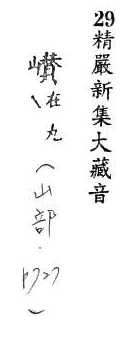 29精嚴新集大藏音
巑在丸(山部.
)